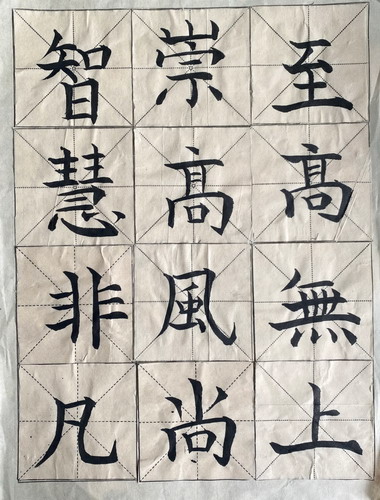 至髙無上
崇髙風尚
智慧非凡